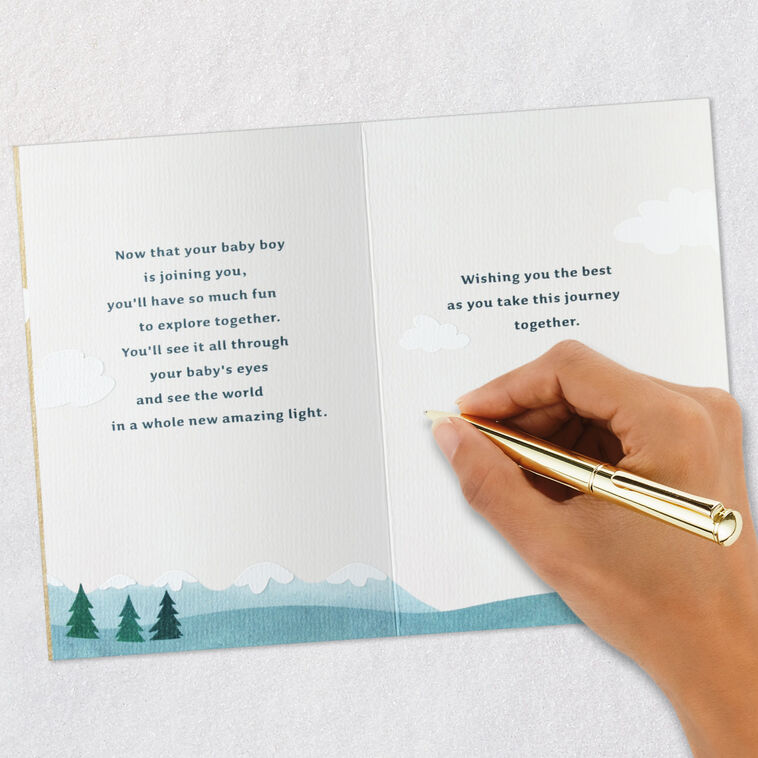 Now that your baby boy
is joining you,
you'll have so much fun
to explore together.
You'll see it all through
your baby's eyes
and see the world
in a whole new amazing light.
Wishing you the best
as you take this journey
together.